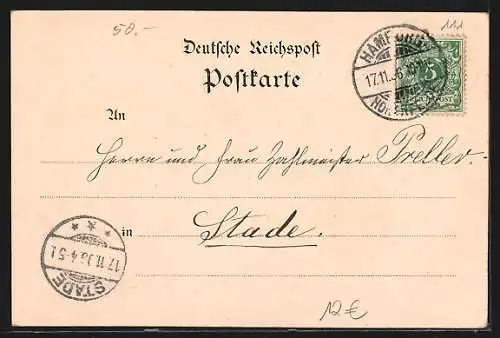 50.-
111
Deutsche Reichspost
Postkarte
HAMBURG
17.11.96
5
POST
An
Herrn und Frau Zahlmeister Preller.
in Stade.
STADE
17.11.96 4-5 N
12 €